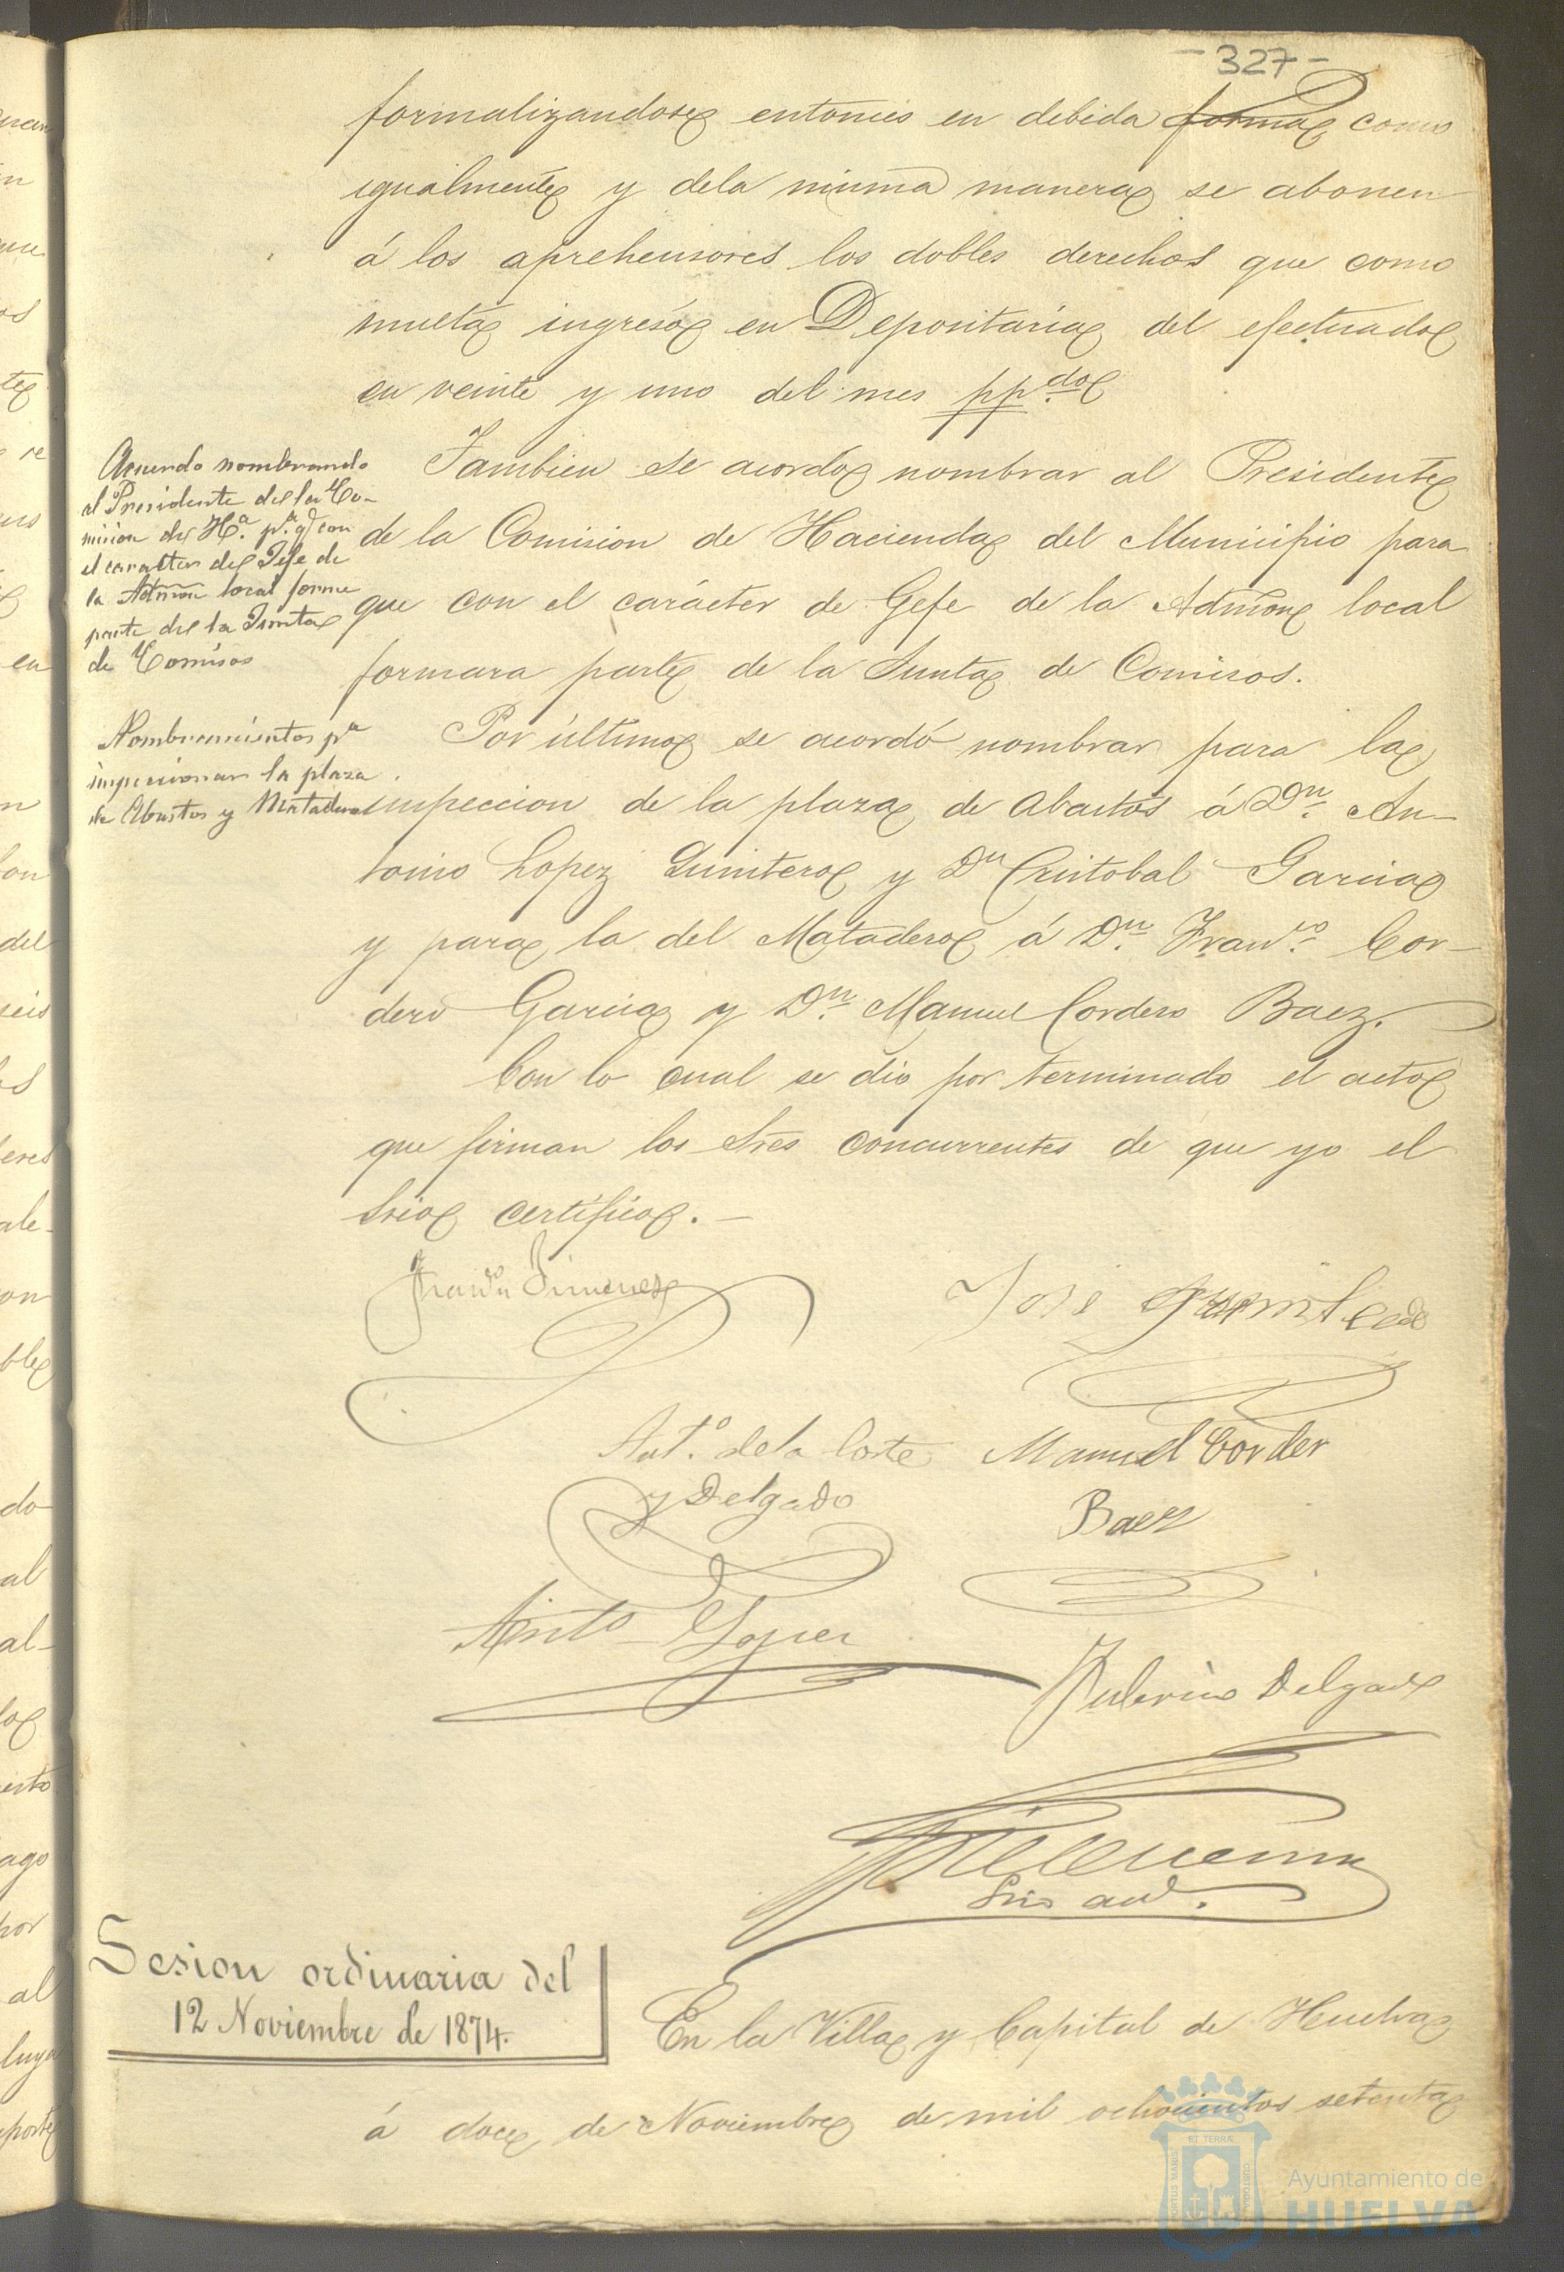 -327-
formalizandose entonces en debida forma como
igualmente y dela misma manera se abonen
á los aprehensores los dobles derechos que como
multa ingresó en Depositaria del efectuado
en veinte y uno del mes pp.do
Acuerdo nombrando
al Presidente de la Co-
mision de H.a p.a q.e con
el caracter de Jefe de
la Admon local forme
parte de la Junta
de Comisos
Tambien se acordó nombrar al Presidente
de la Comision de Hacienda del Municipio para
que con el carácter de Gefe de la Admon local
formara parte de la Junta de Comisos.
Nombramientos pa
inspeccionar la plaza
de Abastos y Matadero
Por último se acordó nombrar para la
inspeccion de la plaza de Abastos á Dn. An-
tonio Lopez Quintero y Dn Cristobal Garcia
y para la del Matadero á Dn. Franco. Cor-
dero Garcia y Dn. Manuel Cordero Baez.
Con lo cual se dió por terminado el acto
que firman los Sres concurrentes de que yo el
Srio certifico.-
Jimenez
José
Ant.o dela Corte
y Delgado
Manuel Corder
Baez
Anto Lopez
Delgado
Srio
Sesion ordinaria del
12 Noviembre de 1874.
En la Villa y Capital de Huelva
á doce de Noviembre de mil ochocientos setenta
ET TERRÆ
PORTUS MARIS
CUSTODIA
Ayuntamiento de
HUELVA